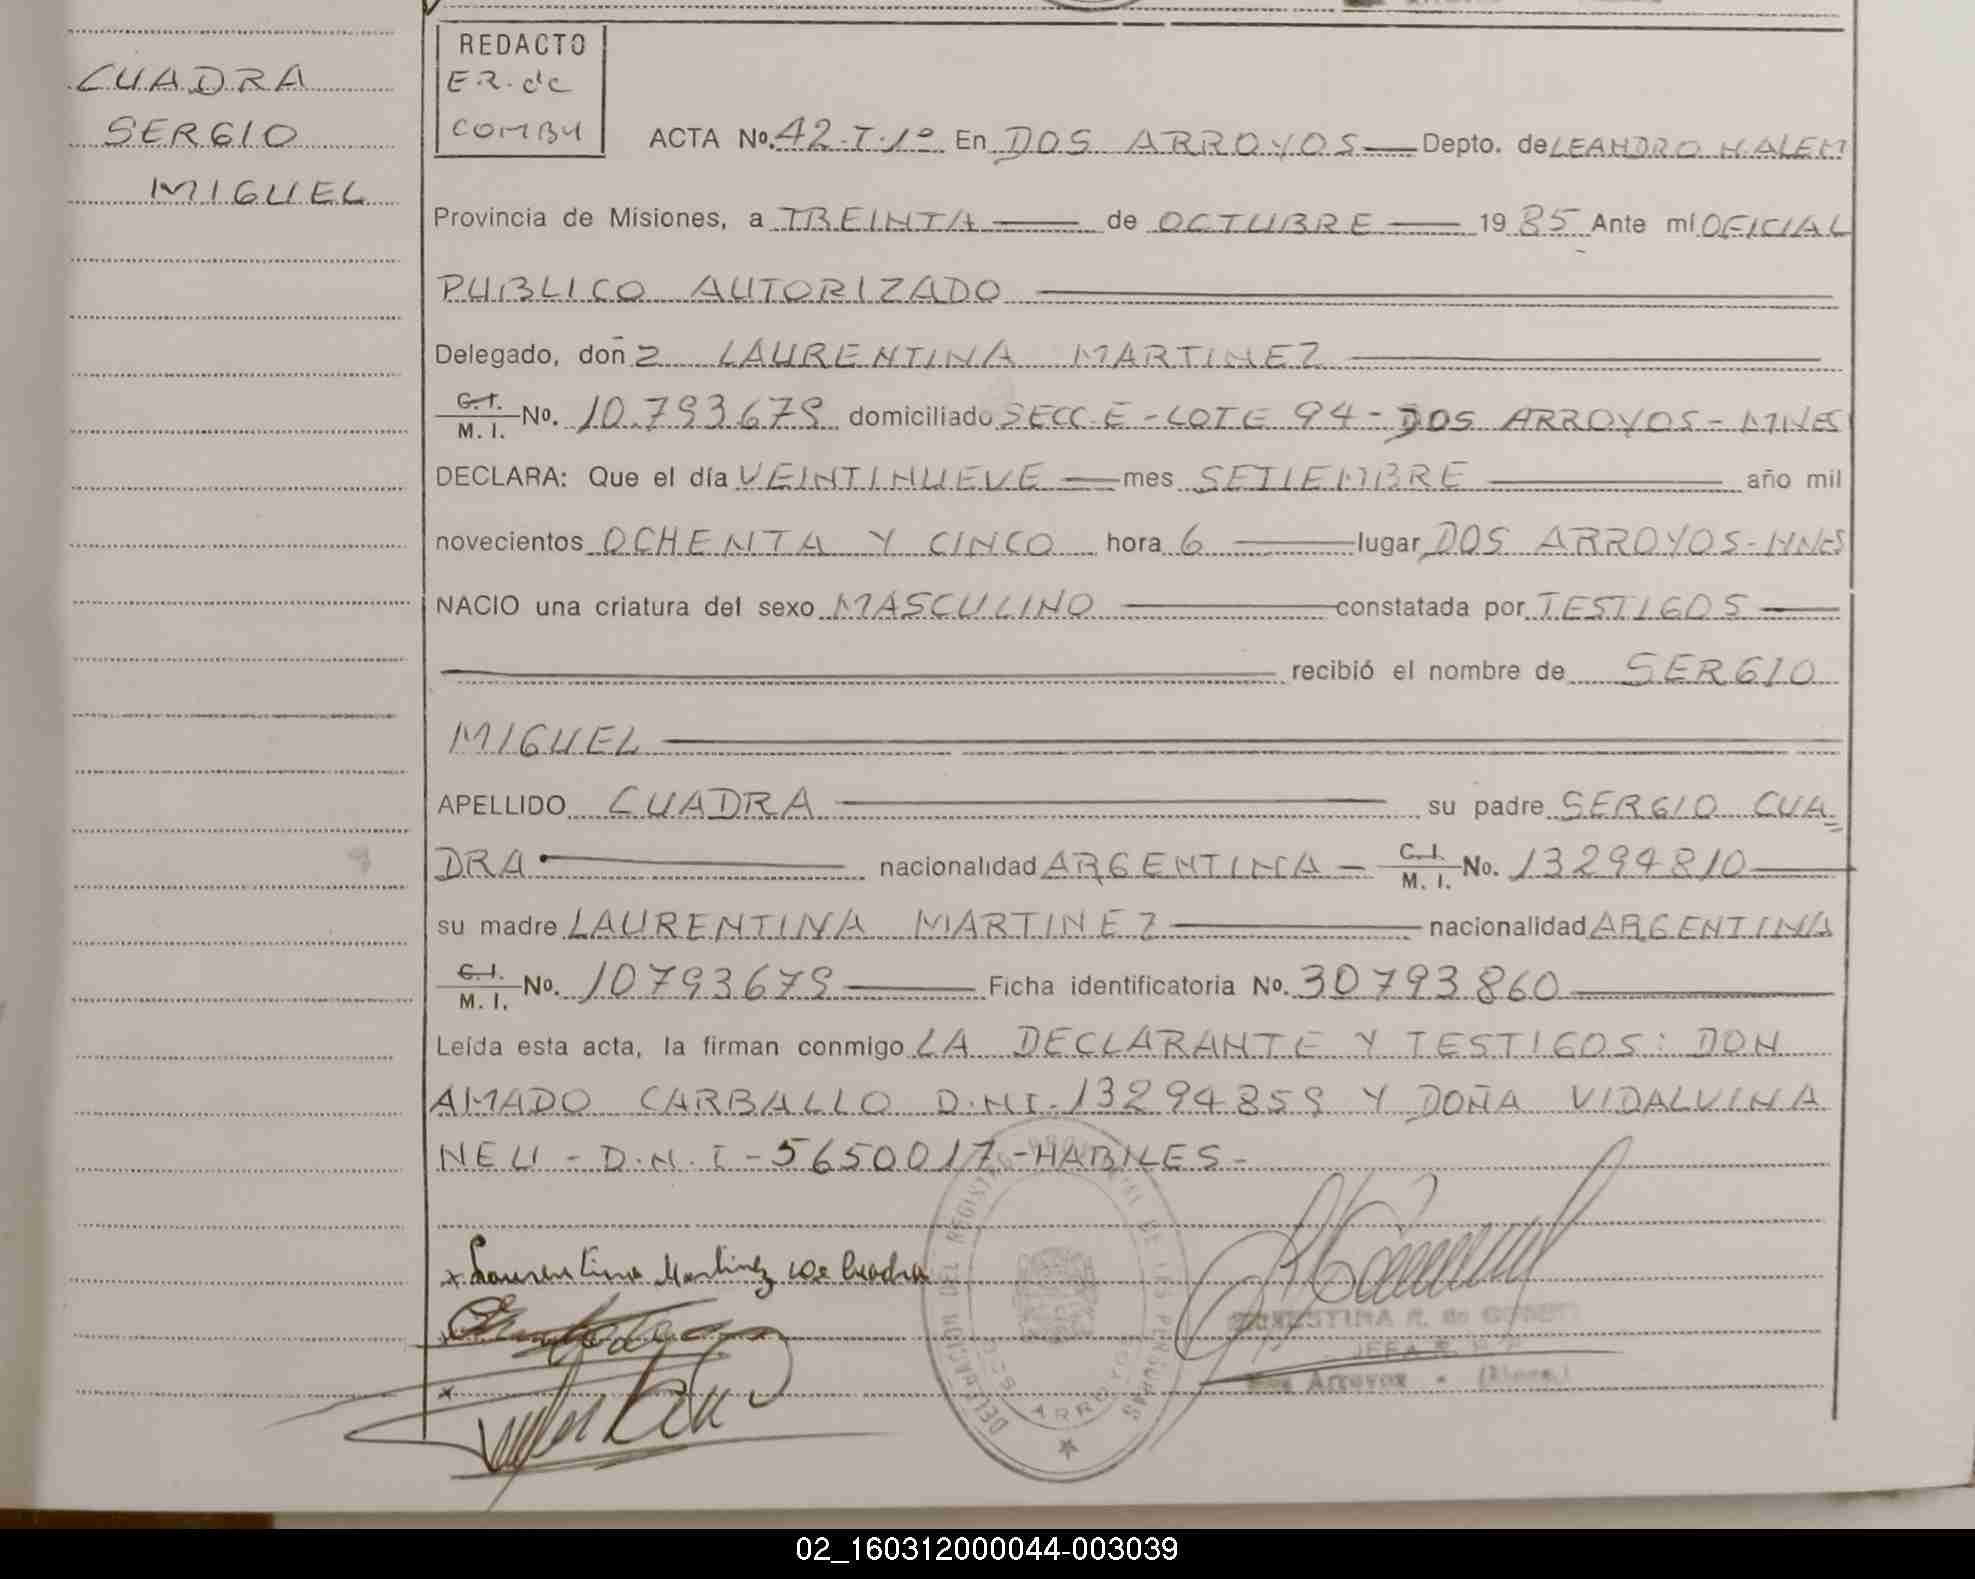 CUADRA
SERGIO
MIGUEL
REDACTO
E.R. de
COMBY
ACTA No. 42-T-1º En DOS ARROYOS Depto. de LEANDRO N. ALEM
Provincia de Misiones, a TREINTA de OCTUBRE 1985 Ante mí OFICIAL
PUBLICO AUTORIZADO
Delegado, doña LAURENTINA MARTINEZ
C.I. M.I. No. 10.793.679 domiciliado SECC. E - LOTE 94 - DOS ARROYOS - MNES
DECLARA: Que el día VEINTINUEVE mes SETIEMBRE año mil
novecientos OCHENTA Y CINCO hora 6 lugar DOS ARROYOS - MNES
NACIO una criatura del sexo MASCULINO constatada por TESTIGOS
recibió el nombre de SERGIO
MIGUEL
APELLIDO CUADRA su padre SERGIO CUA=
DRA nacionalidad ARGENTINA - C.I. M.I. No. 13294810
su madre LAURENTINA MARTINEZ nacionalidad ARGENTINA
C.I. M.I. No. 10793679 Ficha identificatoria No. 30793860
Leída esta acta, la firman conmigo LA DECLARANTE Y TESTIGOS: DON
AMADO CARBALLO D.N.I. 13294859 Y DOÑA VIDALVINA
NELI - D.N.I - 5650017 - HABILES -
x Laurentina Martinez de Cuadra
DELEGACION DEL REGISTRO PROVINCIAL DE LAS PERSONAS
DOS ARROYOS
ERNESTINA R. de
JEFA R.
Dos Arroyos - (Mnes.)
02_160312000044-003039